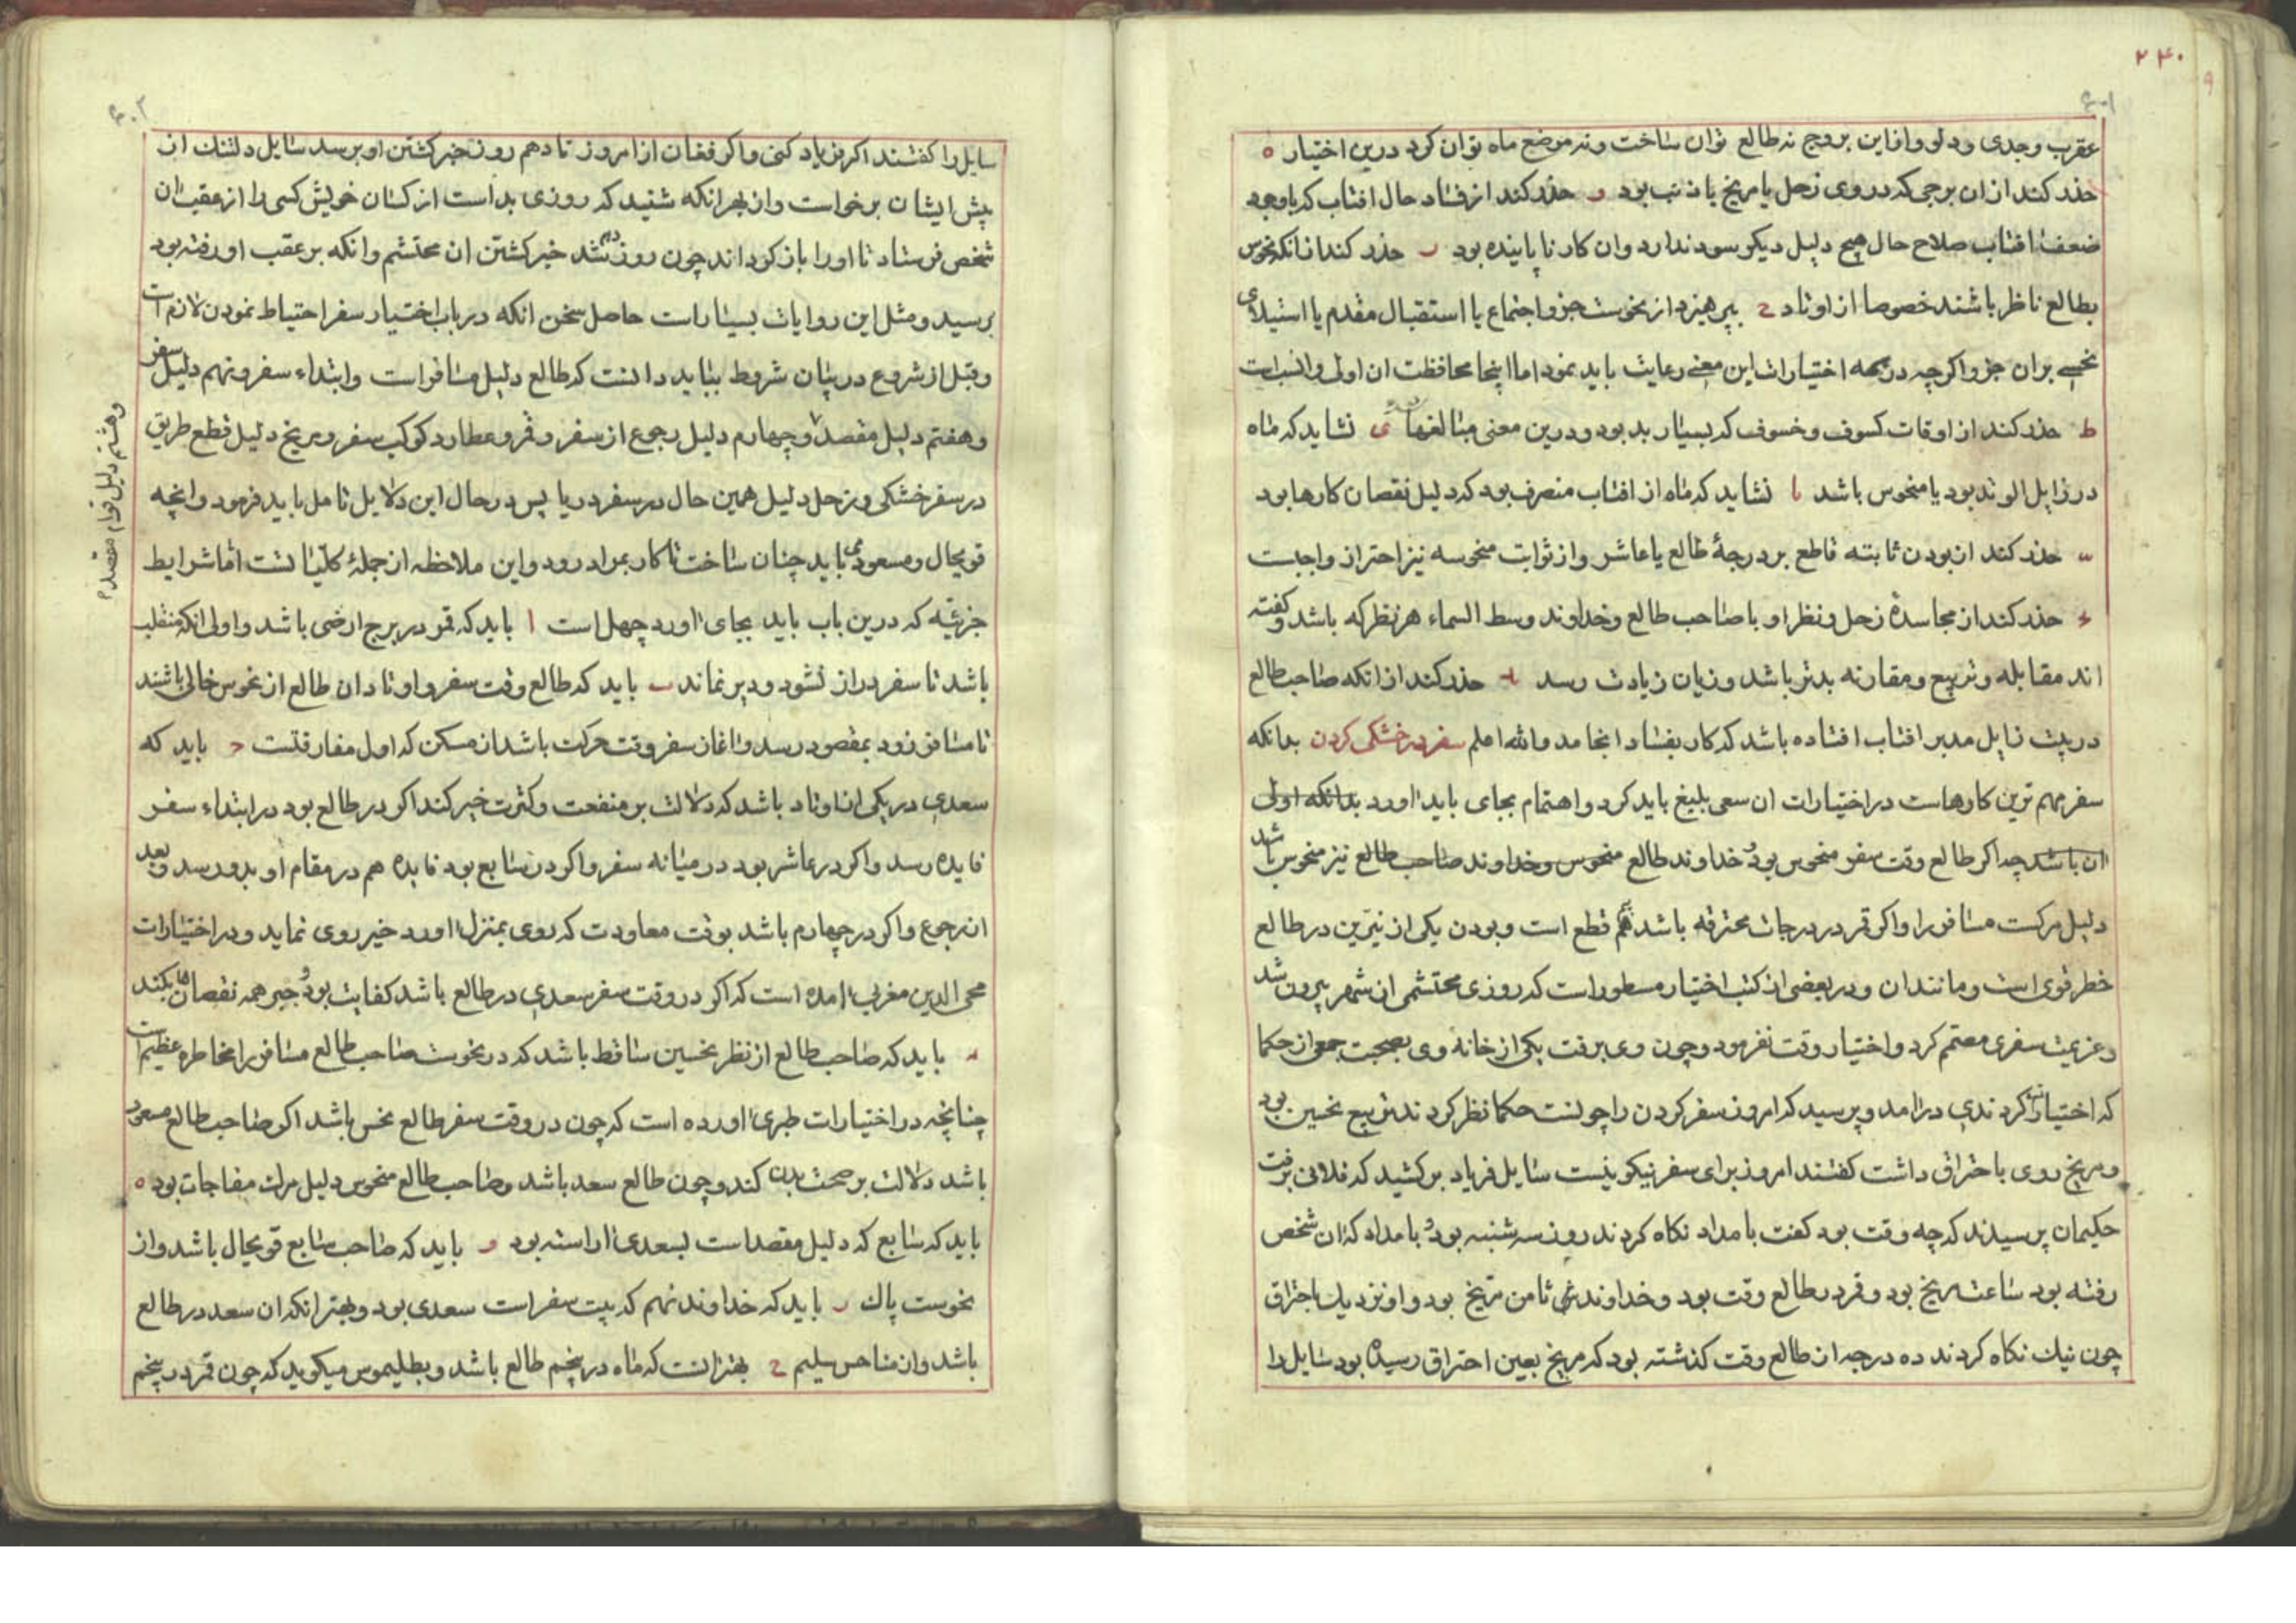 ۲۴۰
عقرب وجدی ودلو وازاین بروج نه طالع توان ساخت ونه موضع ماه توان کرد درین اختیار ه
حذر کنند ازان برجی که در وی زحل یا مریخ یا ذنب بود و حذر کنند از فساد حال افتاب که باوجود
ضعف افتاب صلاح حال هیچ دلیل دیکر سود ندارد وان کار ناپاینده بود ر حذر کنند ازانکه نحوس
بطالع ناظر باشند خصوصا از اوتاد ح بپرهیزد از نحوست جزو اجتماع یا استقبال مقدم یا استیلای
نحسی بران جزو اکرچه در همه اختیارات این معنی رعایت باید نمود اما اینجا محافظت ان اولی وانسبست
ط حذر کنند از اوقات کسوف وخسوف که بسیار بد بود ودرین معنی مبالغها ی نشاید که ماه
در زایل الوتد بود یا منحوس باشد یا نشاید که ماه از افتاب منصرف بود که دلیل نقصان کارها بود
حذر کنند از بودن ثابته قاطع بر درجهٔ طالع یا عاشر واز ثوابت منحوسه نیز احتراز واجبست
حذر کنند از مجاسدهٔ زحل ونظر او با صاحب طالع وخداوند وسط السماء هر نظر که باشد وکفته
اند مقابله وتربیع ومقارنه بدتر باشد وزیان زیادت رسد حذر کنند ازانکه صاحب طالع
در بیت زایل مدبر افتاب افتاده باشد که کار بفساد انجامد والله اعلم سفر در خشکی کردن بدانکه
سفر مهم ترین کارهاست در اختیارات ان سعی بلیغ باید کرد واهتمام بجای باید اورد بدانکه اولی
ان باشد چه اکر طالع وقت سفر منحوس بود وخداوند طالع منحوس وخداوند صاحب طالع نیز منحوس باشد
دلیل مرکست مسافر را واکر قمر در درجات محترقه باشد هم قطع است وبودن یکی از نیّرین در طالع
خطر قوی است ومانند ان ودر بعضی از کتب اختیار مسطور است که روزی محتشمی از شهر بیرون شد
وعزیمت سفری مصمم کرد واختیار وقت نفرمود وچون وی برفت یکی از خانه وی بصحبت جمعی از حکما
که اختیارات کردندی درامد وپرسید که امروز سفر کردن را چونست حکما نظر کردند تربیع نحسین بود
ومریخ روی باحتراق داشت کفتند امروز برای سفر نیکو نیست سایل فریاد برکشید که فلانی برفت
حکیمان پرسیدند که چه وقت بود کفت بامداد نکاه کردند روز سه شنبه بود وبامداد که ان شخص
رفته بود ساعت مریخ بود وقمر در طالع وقت بود وخداوند ثامن مریخ بود واو نزدیک باحتراق
چون نیک نکاه کردند ده درجه از طالع وقت کذشته بود که مریخ بعین احتراق رسیده بود سایل را
سایل را کفتند اکر فریاد کنی واکر فغان از امروز تا دهم روز خبر کشتن او برسد سایل دلتنک از
پیش ایشان برخواست واز بهر انکه شنید که روزی بد است از کسان خویش کسی را از عقب ان
شخص فرستاد تا اورا باز کرداند چون روز دهم شد خبر کشتن ان محتشم وانکه بر عقب او رفته بود
برسید ومثل این روایات بسیار است حاصل سخن انکه در باب اختیار سفر احتیاط نمودن لازم است
وقبل از شروع در بیان شروط بباید دانست که طالع دلیل مسافر است وابتداء سفر ونهم دلیل سفر
وهفتم دلیل مقصد وچهارم دلیل رجوع از سفر وقمر وعطارد کوکب سفر ومریخ دلیل قطع طریق
وهشتم دلیل توام مقصد
در سفر خشکی وزحل دلیل همین حال در سفر دریا پس در حال این دلایل تامل باید فرمود وانچه
قویحال ومسعود می باید چنان ساخت تا کار بمراد رود واین ملاحظه از جملهٔ کلّیاتست امّا شرایط
جزئیّه که درین باب باید بجای اورد چهل است ا باید که قمر در برج ارضی باشد واولی انکه منقلب
باشد تا سفر دراز نشود ودیر نماند ب باید که طالع وقت سفر واوتاد ان طالع از نحوس خالی باشند
تا مسافر زود بمقصود رسد واغاز سفر وقت حرکت باشد از مسکن که اول مفارقتست ج باید که
سعدی در یکی از اوتاد باشد که دلالت بر منفعت وکثرت خیر کند اکر در طالع بود در ابتداء سفر
فایده رسد واکر در عاشر بود در میانه سفر واکر در سابع بود فایده هم در مقام او بدو رسد وبعد
ان رجوع واکر در چهارم باشد بوقت معاودت که روی بمنزل اورد خیر روی نماید ودر اختیارات
محی الدین مغربی امده است که اکر در وقت سفر سعدی در طالع باشد کفایت بود وجبر همه نقصانها بکند
د باید که صاحب طالع از نظر نحسین ساقط باشد که در نحوست صاحب طالع مسافر را مخاطره عظیم است
چنانچه در اختیارات طبری اورده است که چون در وقت سفر طالع نحس باشد اکر صاحب طالع مسعود
باشد دلالت بر صحت بدن کند وچون طالع سعد باشد وصاحب طالع منحوس دلیل مرک مفاجات بود ه
باید که سابع که دلیل مقصد است بسعدی اراسته بود و باید که صاحب سابع قویحال باشد واز
نحوست پاک ر باید که خداوند نهم که بیت سفر است سعدی بود وبهتر انکه ان سعد در طالع
باشد واز مناحس سلیم ح بهتر انست که ماه در پنجم طالع باشد وبطلیموس میکوید که چون قمر در پنجم